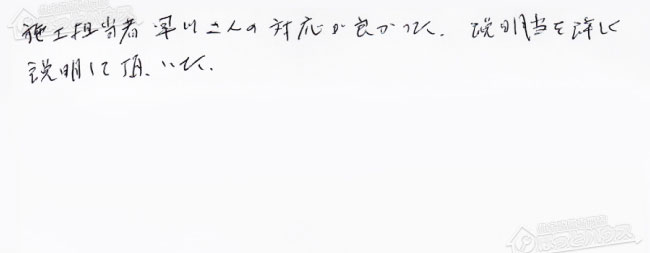 施工担当者 早川さんの対応が良かった。説明当を詳しく
説明して頂いた。